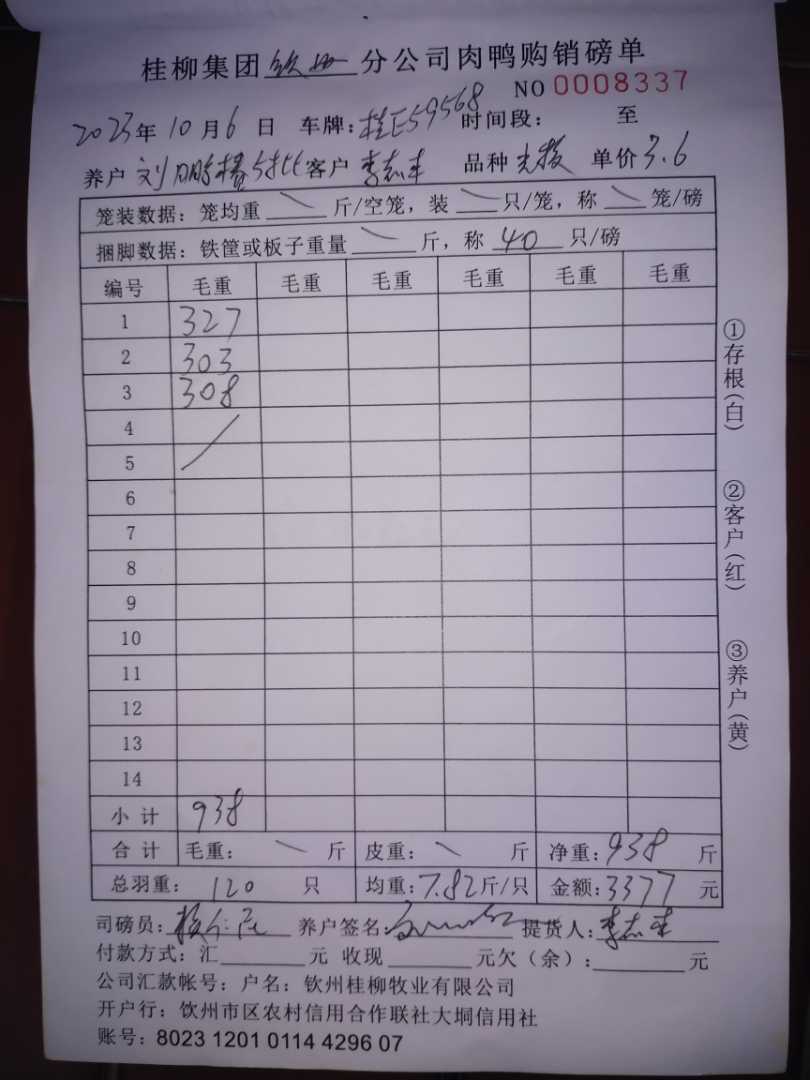 桂柳集团钦州分公司肉鸭购销磅单
NO 0008337
2023年10月6日 车牌:桂E59568 时间段: 至
养户 刘 客户 李志丰 品种 单价3.6
笼装数据: 笼均重 斤/空笼, 装 只/笼, 称 笼/磅
捆脚数据: 铁筐或板子重量 斤, 称 40 只/磅
编号 毛重 毛重 毛重 毛重 毛重 毛重
1 327
2 303
3 308
4
5
6
7
8
9
10
11
12
13
14
小计 938
合计 毛重: 斤 皮重: 斤 净重:938 斤
总羽重: 120 只 均重:7.82斤/只 金额:3377 元
司磅员: 养户签名: 提货人:李志丰
付款方式:汇 元 收现 元欠(余): 元
公司汇款帐号: 户名: 钦州桂柳牧业有限公司
开户行: 钦州市区农村信用合作联社大垌信用社
账号: 8023 1201 0114 4296 07
①存根(白)
②客户(红)
③养户(黄)